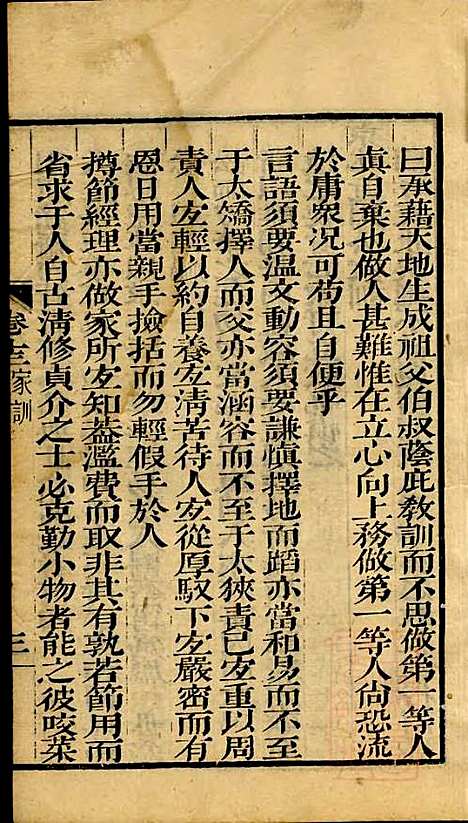 曰承藉天地生成祖父伯叔蔭庇敎訓而不思做第一等人
眞自棄也做人甚難惟在立心向上務做第一等人尙恐流
於庸衆况可苟且自便乎
言語須要温文動容須要謙慎擇地而蹈亦當和易而不至
于太矯擇人而交亦當涵容而不至于太狹責已宐重以周
責人宐輕以約自養宐淸苦待人宐從厚馭下宐嚴密而有
恩日用當親手撿括而勿輕假手於人
撙節經理亦做家所宐知葢濫費而取非其有孰若節用而
省求于人自古淸修貞介之士必克勤小物者能之彼咬菜
卷三家訓
三